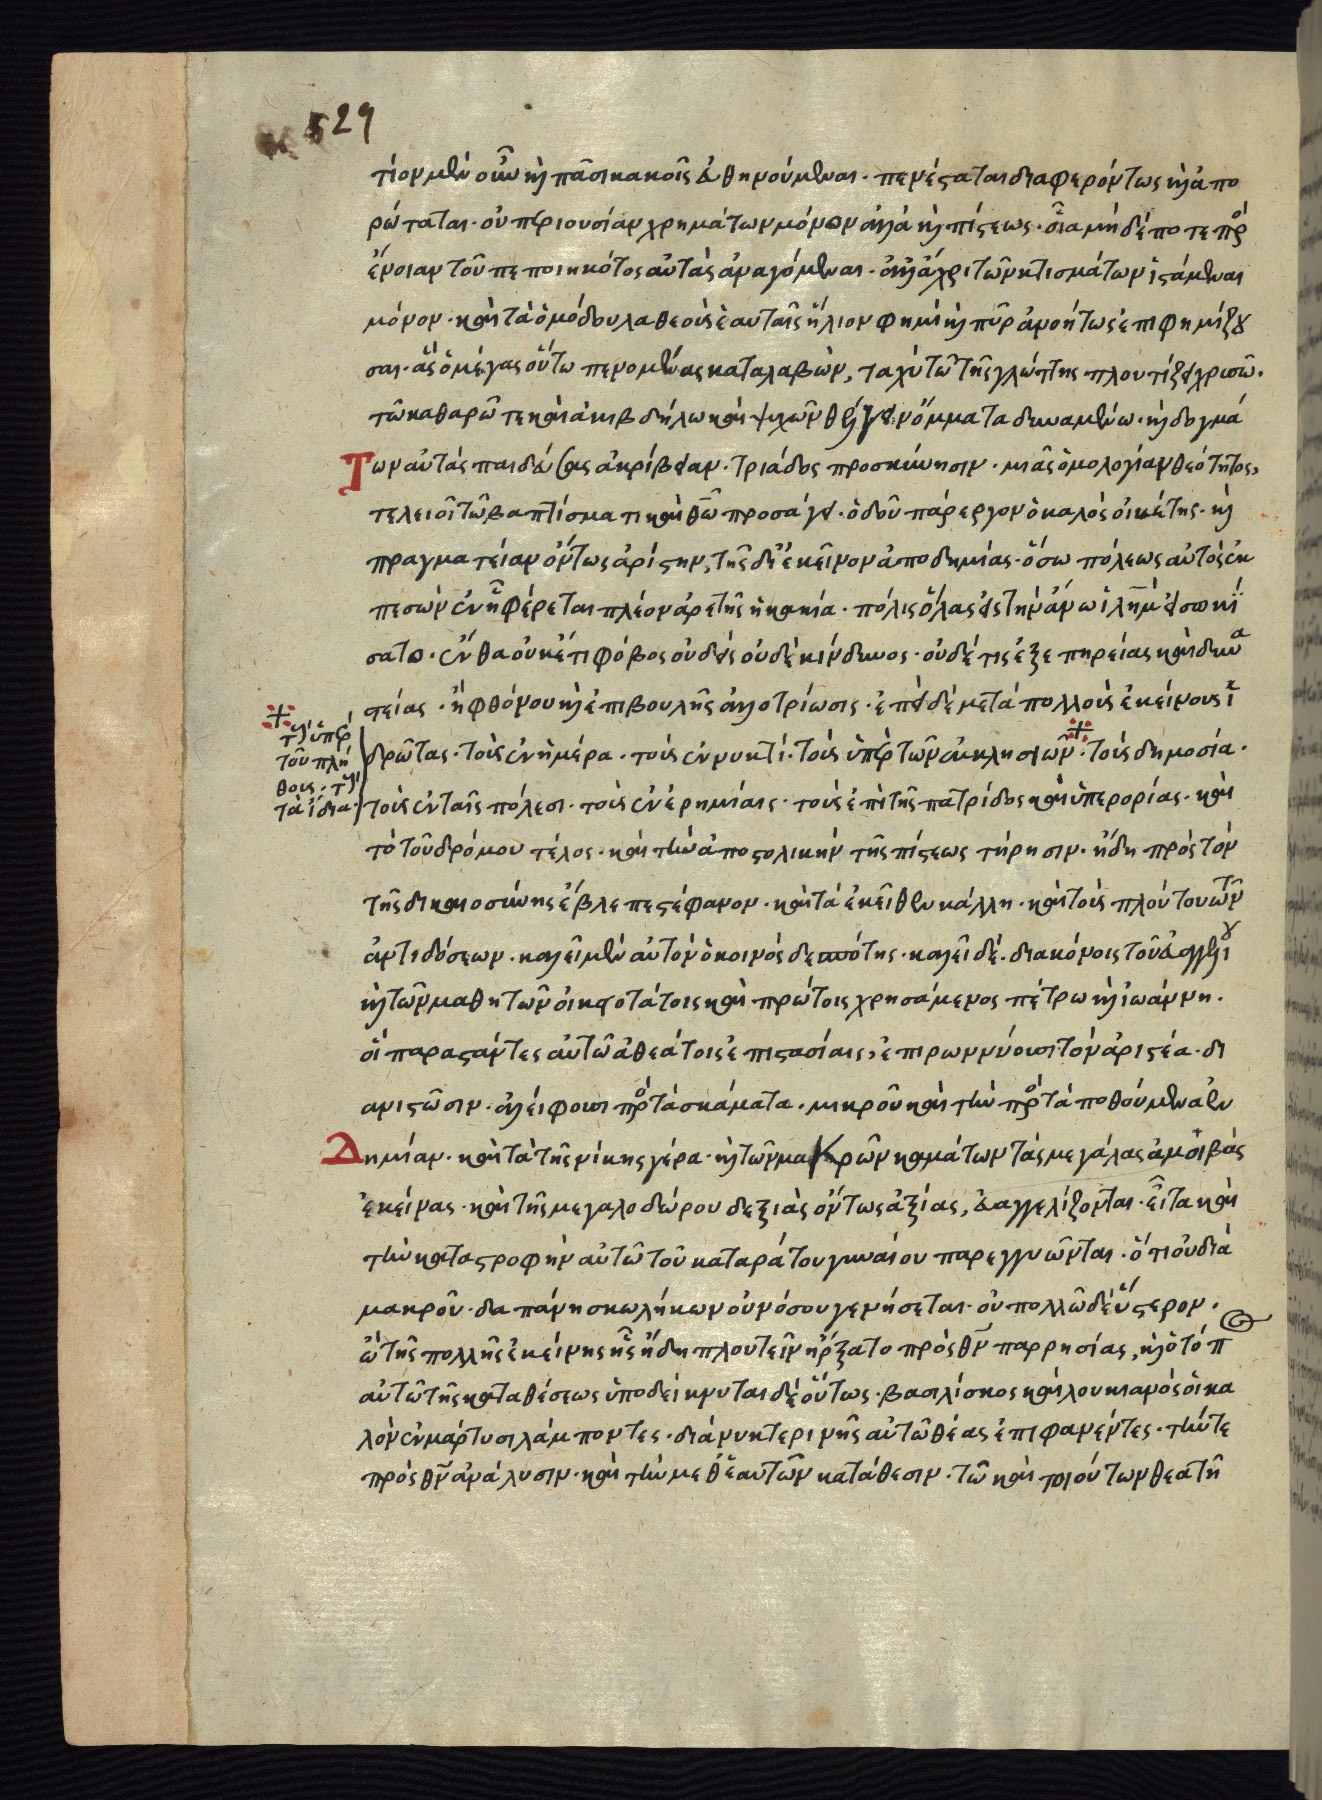 529
τιον μὲν οὖν καὶ πᾶσι κακοῖς εὐθηνούμεναι· πενέσταται διαφερόντως καὶ ἀπο
ρώταται· οὐ περιουσίαν χρημάτων μόνον ἀλλὰ καὶ πίστεως· οἷα μηδέποτε πρὸς
ἔννοιαν τοῦ πεποιηκότος αὐτὰς ἀναγόμεναι· ἀλλ' ἄχρι τῶν κτισμάτων ἱστάμεναι
μόνον· καὶ τὰ ὁμόδουλα θεοὺς ἑαυταῖς ἥλιον φημὶ καὶ πῦρ ἀνοήτως ἐπιφημίζου
σαι· ἃς ὁ μέγας οὕτω πενομένας καταλαβών, ταχὺ τῶ τῆς γλώττης πλουτίζει χρυσῶ·
τῶ καθαρῶ τε καὶ ἀκιβδήλω καὶ ψυχῶν θέλγειν ὄμματα δυναμένω· καὶ δογμά
Των αὐτὰς παιδεύσας ἀκρίβειαν· τριάδος προσκύνησιν· μιᾶς ὁμολογίαν θεότητος,
τελειοῖ τῶ βαπτίσματι καὶ θεῶ προσάγει· ὁδοῦ πάρεργον ὁ καλὸς οἰκέτης· καὶ
πραγματείαν ὄντως ἀρίστην, τῆς δι' ἐκεῖνον ἀποδημίας· ὅσω πόλεως αὐτὸς ἐκ
πεσὼν ἐν ᾗ φέρεται πλέον ἀρετῆς ἢ κακία· πόλις ὅλας εἰς τὴν ἄνω ἱλὴμ εἰσωκί
σατο· ἔνθα οὐκέτι φόβος οὐδεὶς οὐδὲ κίνδυνος· οὐδέ τις ἐξ ἐπηρείας καὶ δυνα
τείας· ἢ φθόνου καὶ ἐπιβουλῆς ἀλλοτρίωσις· ἐπεὶ δὲ μετὰ πολλοὺς ἐκείνους ἱ
δρῶτας· τοὺς ἐν ἡμέρα· τοὺς ἐν νυκτί· τοὺς ὑπὲρ τῶν ἐκκλησιῶν· τοὺς δημοσία·
τοὺς ὑπὲρ
τοῦ πλή
θους· τοὺς
τὰ ἴδια·
τοὺς ἐν ταῖς πόλεσι· τοὺς ἐν ἐρημίαις· τοὺς ἐπὶ τῆς πατρίδος καὶ ὑπερορίας· καὶ
τὸ τοῦ δρόμου τέλος· καὶ τὴν ἀποστολικὴν τῆς πίστεως τήρησιν· ἤδη πρὸς τὸν
τῆς δικαιοσύνης ἔβλεπε στέφανον· καὶ τὰ ἐκεῖθεν κάλλη· καὶ τοὺς πλούτους τῶν
ἀντιδόσεων· καλεῖ μὲν αὐτὸν ὁ κοινὸς δεσπότης· καλεῖ δὲ· διακόνοις τοῦ εὐαγγελίου
καὶ τῶν μαθητῶν οἰκειοτάτοις καὶ πρώτοις χρησάμενος πέτρω καὶ ἰωάννη·
οἳ παραστάντες αὐτῶ ἀθεάτοις ἐπιστασίαις, ἐπιρωννύουσι τὸν ἀριστέα· δι
ανιστῶσιν· ἀλείφουσι πρὸς τὰ σκάματα· μικροῦ καὶ τὴν πρὸς τὰ ποθούμενα ἐν
Δημίαν· καὶ τὰ τῆς νίκης γέρα· καὶ τῶν μακρῶν καμάτων τὰς μεγάλας ἀμοιβὰς
ἐκείνας· καὶ τῆς μεγαλοδώρου δεξιᾶς ὄντως ἀξίας, εὐαγγελίζονται· εἶτα καὶ
τὴν καταστροφὴν αὐτῶ τοῦ καταράτου γυναίου παρεγγυῶνται· ὅτι οὐ διὰ
μακροῦ· δαπάνη σκωλήκων οὐ νόσου γενήσεται· οὐ πολλῶ δὲ ὕστερον·
ὢ τῆς πολλῆς ἐκείνης ἧς ἤδη πλουτεῖν ἤρξατο πρὸς θεὸν παρρησίας, καὶ ὁ τόπος
αὐτῶ τῆς καταθέσεως ὑποδείκνυται δὲ οὕτως· βασιλίσκος καὶ λουκιανὸς οἱ κα
λὸν ἐν μάρτυσι λάμποντες· διὰ νυκτερινῆς αὐτῶ θέας ἐπιφανέντες· τήν τε
πρὸς θεὸν ἀνάλυσιν· καὶ τὴν μεθ' ἑαυτῶν κατάθεσιν· τῶ καὶ τοιούτων θεατῆ